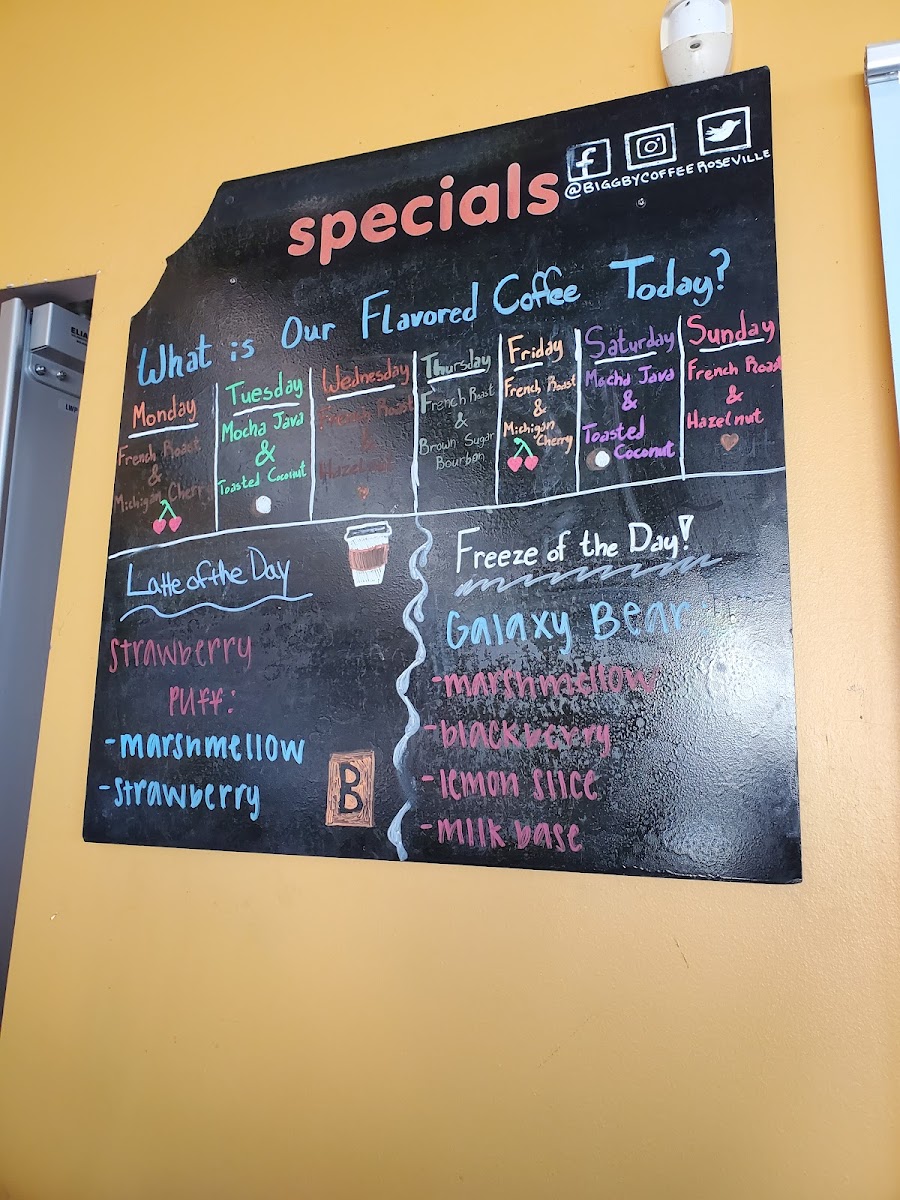 @BIGGBYCOFFEEROSEVILLE
specials
What is Our Flavored Coffee Today?
Monday
French Roast
&
Michigan Cherry
Tuesday
Mocha Java
&
Toasted Coconut
Wednesday
French Roast
&
Hazelnut
Thursday
French Roast
&
Brown Sugar
Bourbon
Friday
French Roast
&
Michigan
Cherry
Saturday
Mocha Java
&
Toasted
Coconut
Sunday
French Roast
&
Hazelnut
Latte of the Day
Strawberry
Puff:
-marshmellow
-strawberry
B
Freeze of the Day!
Galaxy Bear:
-marshmellow
-blackberry
-lemon slice
-milk base